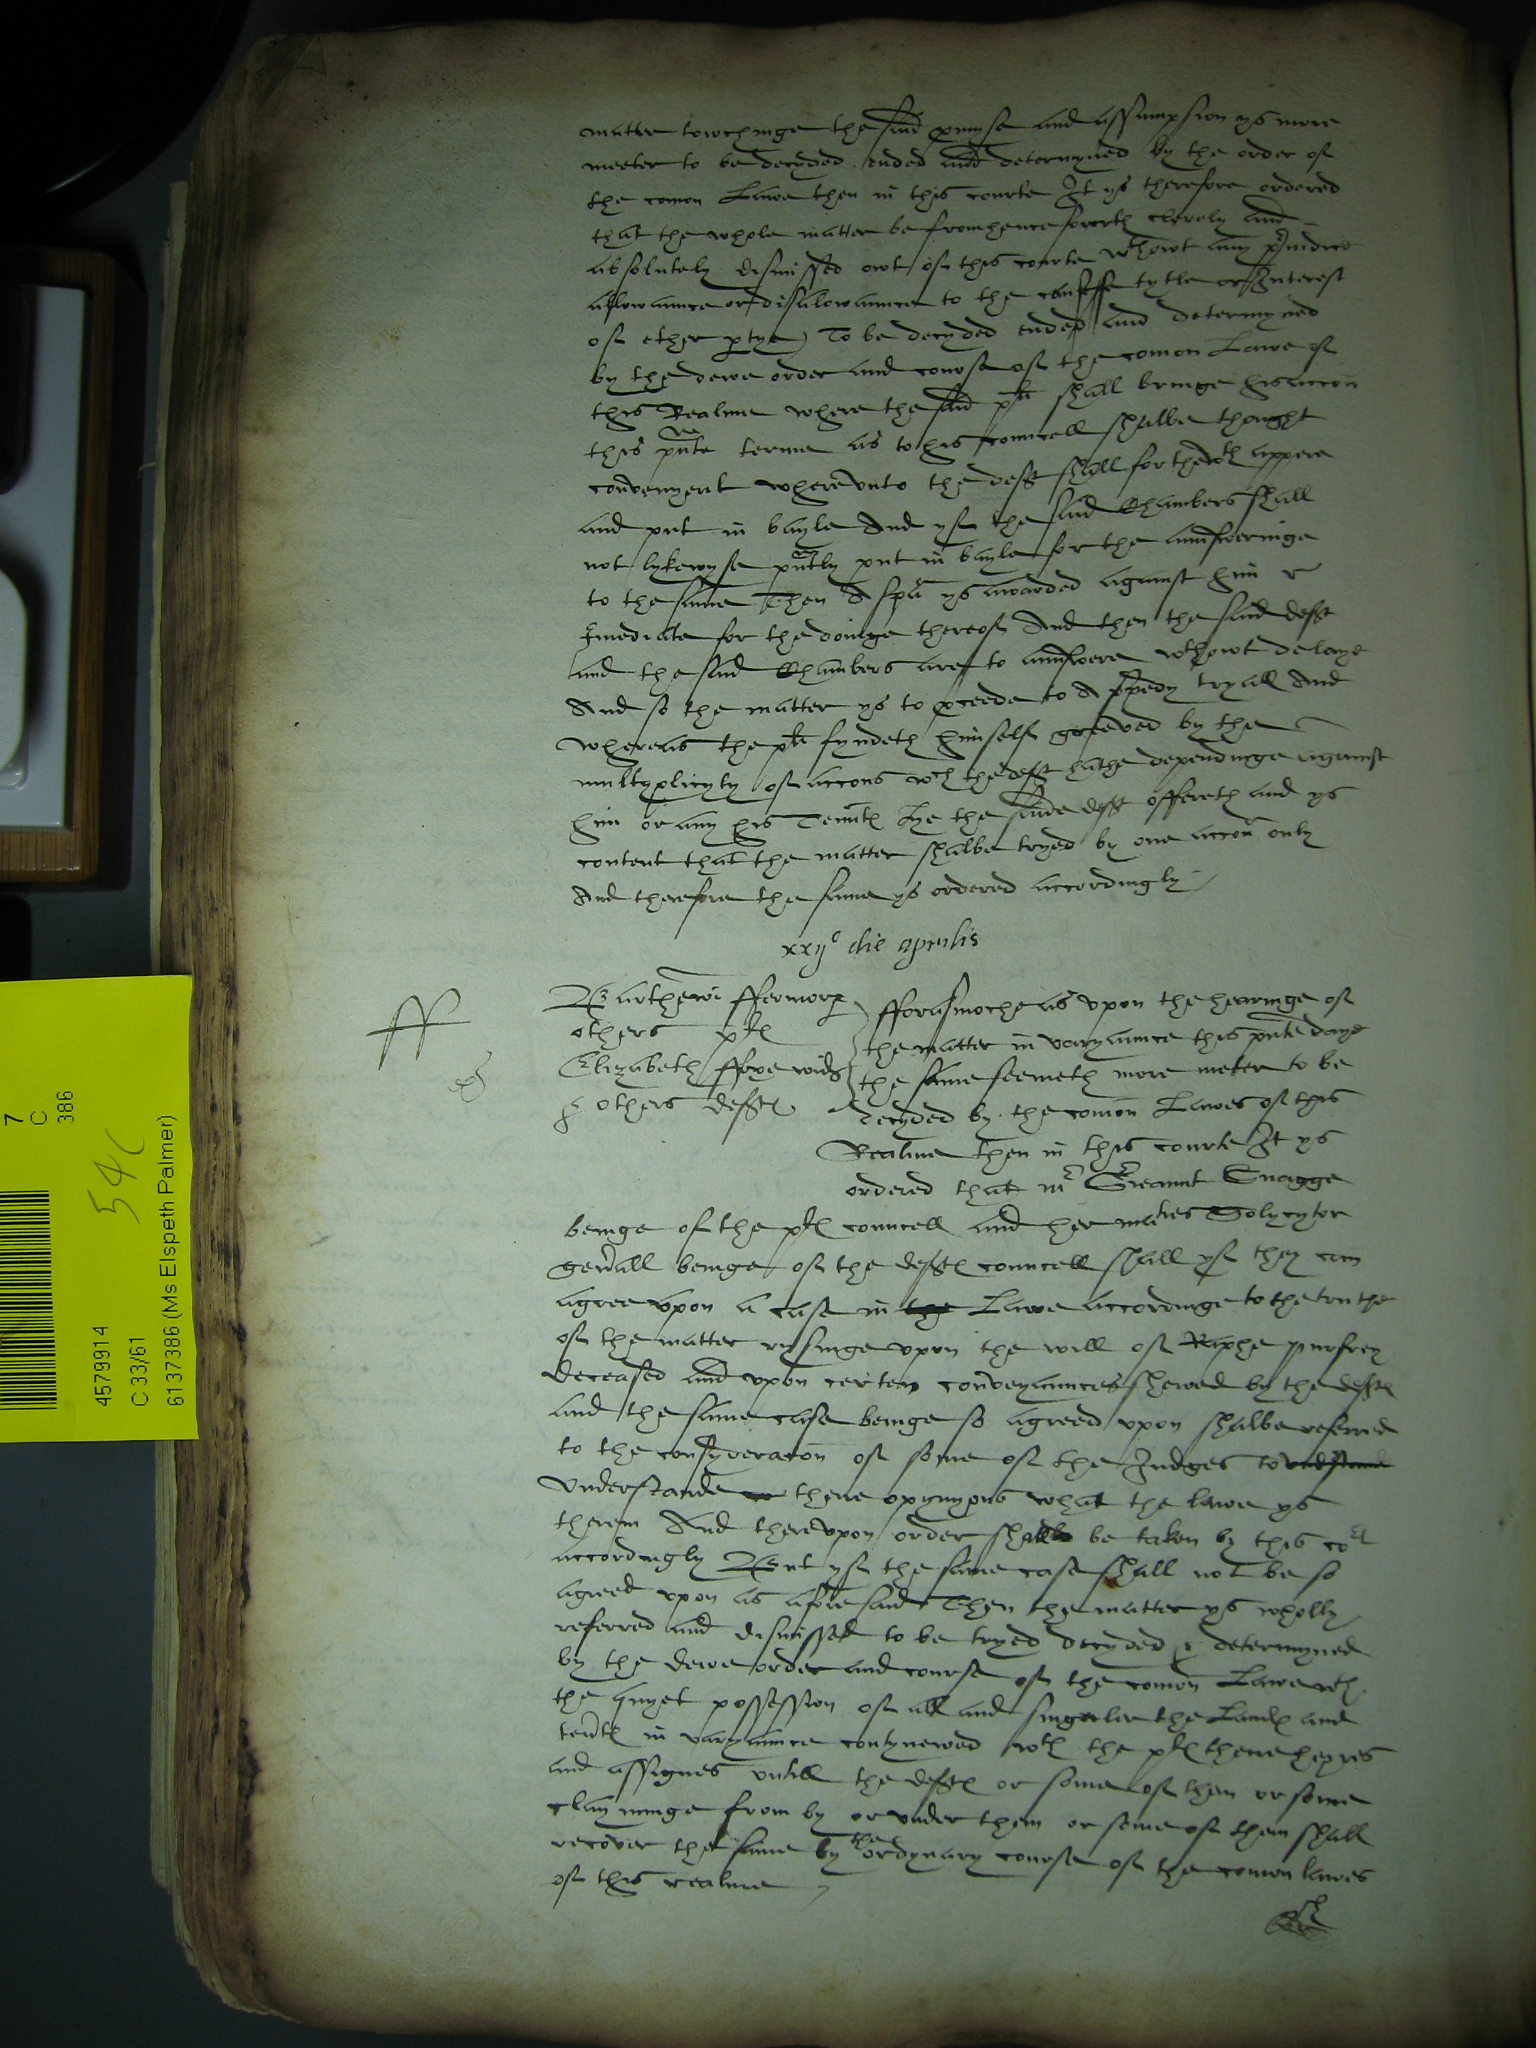 matter towchinge the said pmyse and assumpsion ys more
meeter to be decyded ended and determyned by the order of
the comon Lawe then in this courte It ys therefore ordered
that the whole matter be from henceforth clerely and
absolutely dismissed owt of this courte wthowt any piudice
allowaunce or disalowaunce to the tytle or Interest
of ether ptye To be decyded ended and determyned
by the dewe order and course of the comon Lawe of
this Realme where the said plt shall bringe his accon
this pnte terme as to his councell shalbe thought
convenyent wherevnto the deft shall forthwth appere
and put in bayle And yf the said Chambers shall
not lykewyse pntly put in bayle for the aunsweringe
to the same Then A spa ys awarded against him
Imediate for the doinge thereof And then the said deft
and the said Chambers are to aunswere wthowt delaye
And so the matter ys to pceede to A spedy tryall And
whereas the plt fyndeth himself greeved by the
multyplicyty of accons wch the deft hathe dependinge against
him or any his Tennts he the saide deft offereth and ys
content that the matter shalbe tryed by one accon only
And therefore the same ys ordered accordingly
xxijo die aprilis
ff
Barthewe ffermor &
others plts
Elizabeth ffoxe wid
& others defts
fforasmoche as vpon the hearinge of
the matter in varyaunce this pnte daye
the same seemeth more meter to be
decyded by the comon Lawes of this
Realme then in this courte It ys
ordered that mr Sreaunt Snagge
beinge of the plts councell and her maties Solycytor
gen'all beinge of the defts councell shall yf they can
agree vpon a case in the Lawe accordinge to the truthe
of the matter rysinge vpon the will of Raphe purfrey
deceased and vpon certen conveyaunces shewed by the defts
and the same case beinge so agreed vpon shalbe referred
to the consyderacon of some of the Judges to vnderstand
vnderstande there opynyons what the lawe ys
therein And therevpon order shall be taken by this cort
accordingly But yf the same case shall not be so
agreed vpon as aforesaid Then the matter ys wholly
referred and dismissed to be tryed decyded & determyned
by the dewe order and course of the comon Lawe wth
the quyet possession of all and singuler the Lands and
tents in varyaunce contynewed wth the plts there heyres
and assignes vntill the defts or some of them or some
clayminge from by or vnder them or some of them shall
recover the same by the ordynary course of the comon lawes
of this realme
7
C
386
541
4579914
C 33/61
6137386 (Ms Elspeth Palmer)